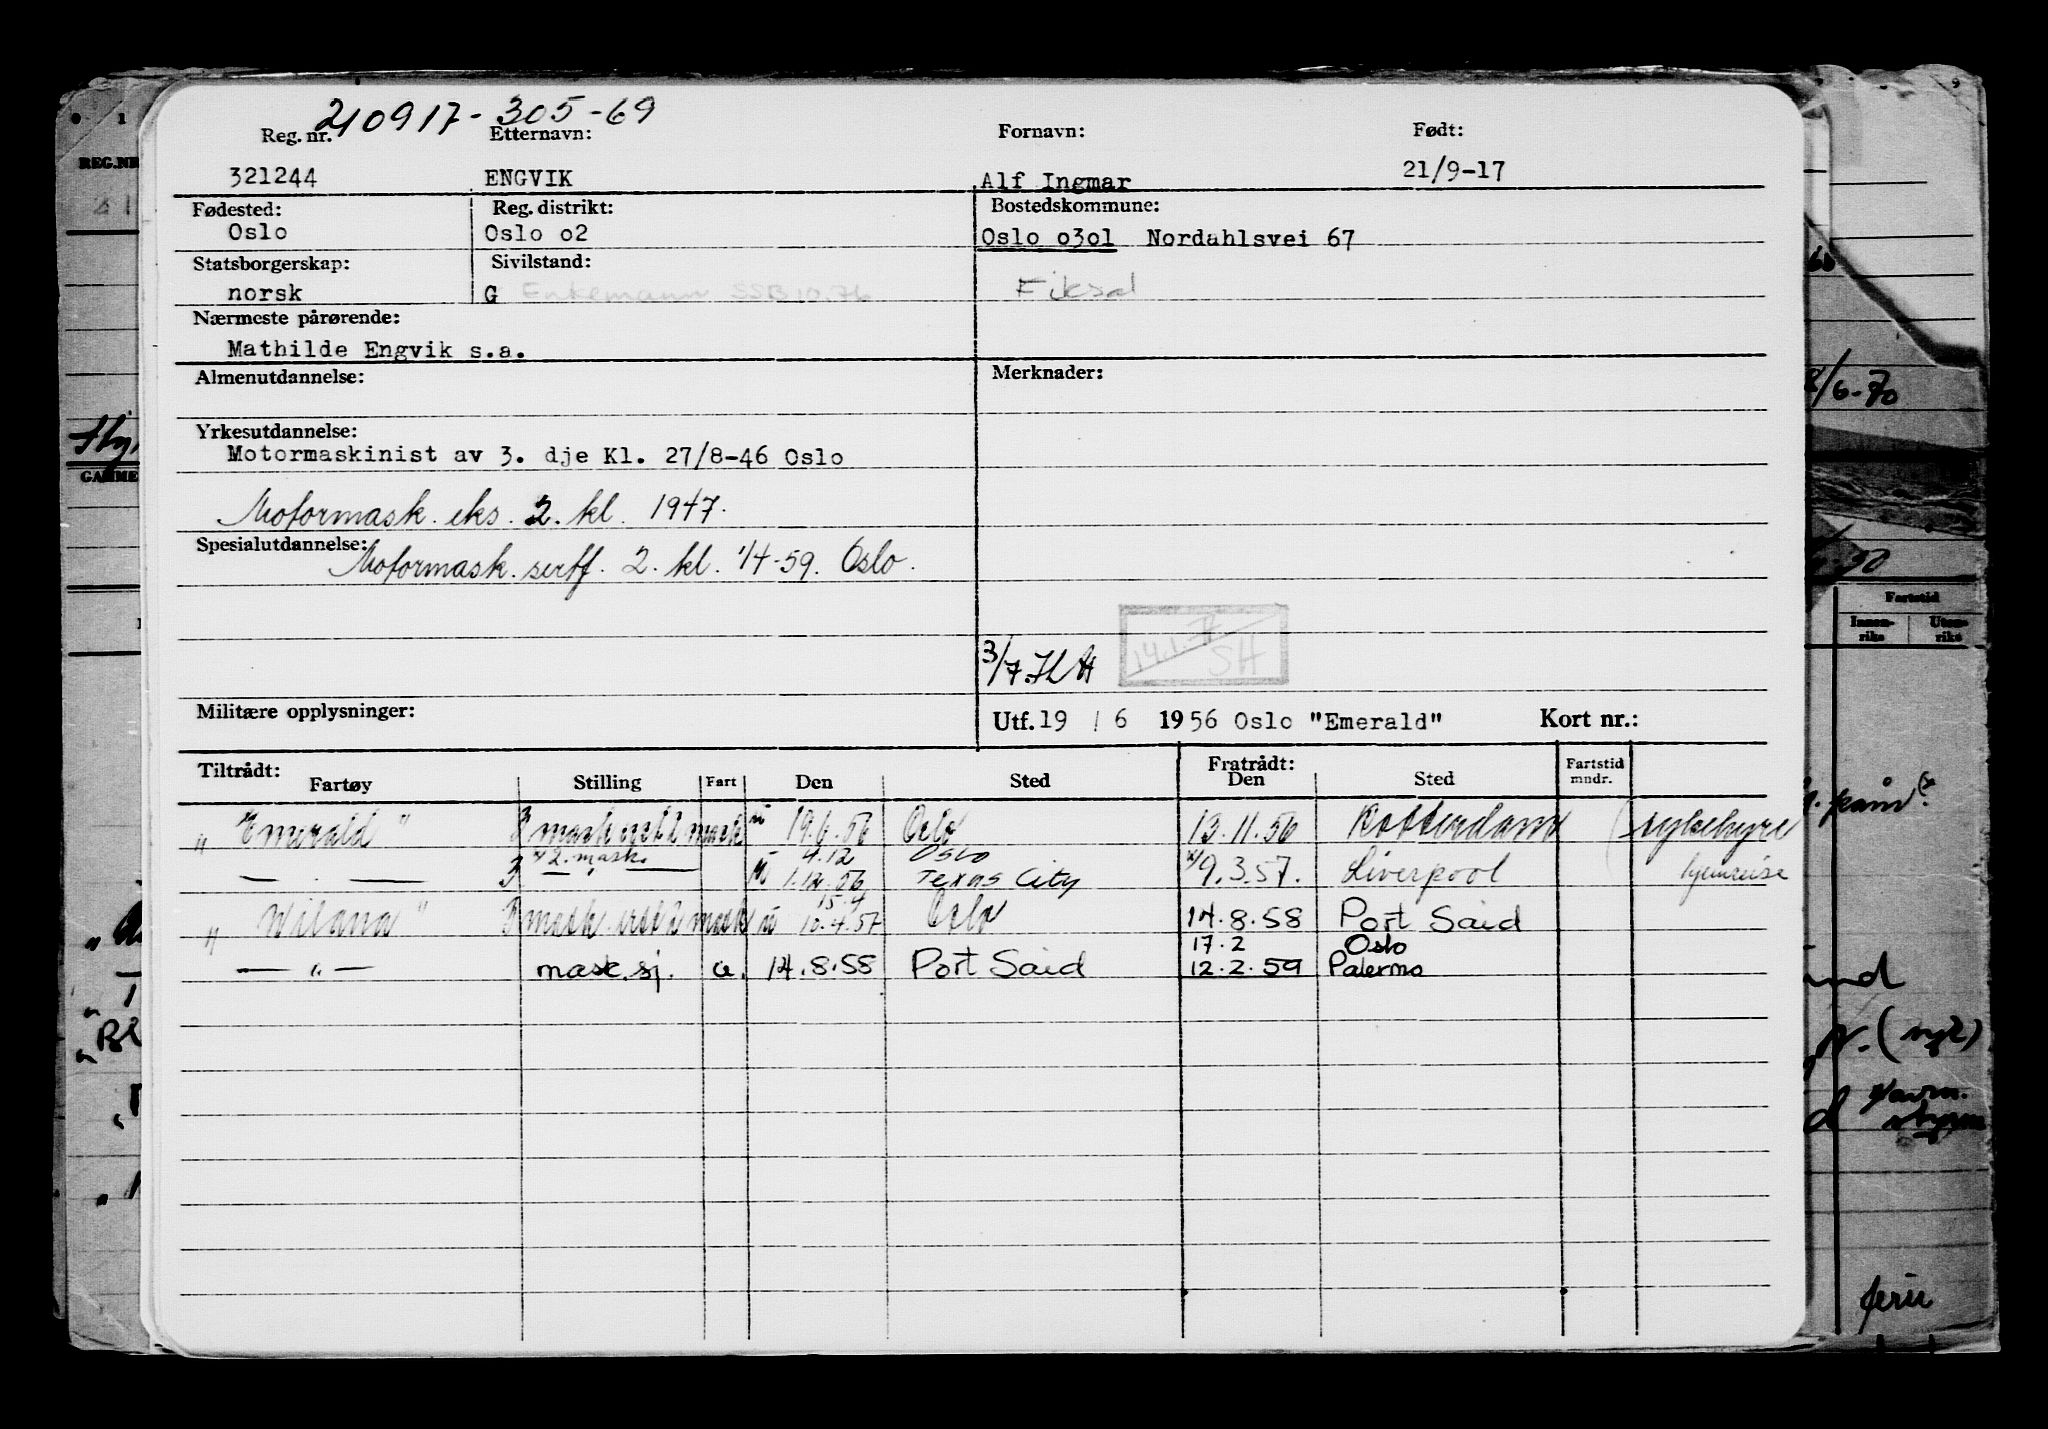 210917-305-69
Reg. nr. Etternavn: Fornavn: Født:
321244 ENGVIK Alf Ingmar 21/9-17
Fødested: Reg. distrikt: Bostedskommune:
Oslo Oslo o2 Oslo o3o1 Nordahlsvei 67
Statsborgerskap: Sivilstand:
norsk G Enkemann SSB 10.76
Nærmeste pårørende:
Mathilde Engvik s.a.
Almenutdannelse: Merknader:
Yrkesutdannelse:
Motormaskinist av 3. dje Kl. 27/8-46 Oslo
Motormask. eks. 2. kl. 1947.
Spesialutdannelse: Motormask. sertf. 2. kl. 1/4-59. Oslo.
3/7.
SH
Militære opplysninger: Utf. 19 / 6 1956 Oslo "Emerald" Kort nr.:
Tiltrådt: Fratrådt: Fartstid mndr.
Fartøy Stilling Fart Den Sted Den Sted
"Emerald" 3 mask 2 mask u 19.6.56 Oslo 13.11.56 Rotterdam (sykehyre
4.12 Oslo
— " — 3 2. mask. u 1.12.56 Texas City 9.3.57. Liverpool hjemreise
15.4
"Wilana" 3 mask 2 mask u 10.4.57 Oslo 14.8.58 Port Said
17.2 Oslo
— " — mask. sj. u. 14.8.58 Port Said 12.2.59 Palermo
REG.NR
GAMME
8/6-70
Fartstid
Innen-riks Uten-riks